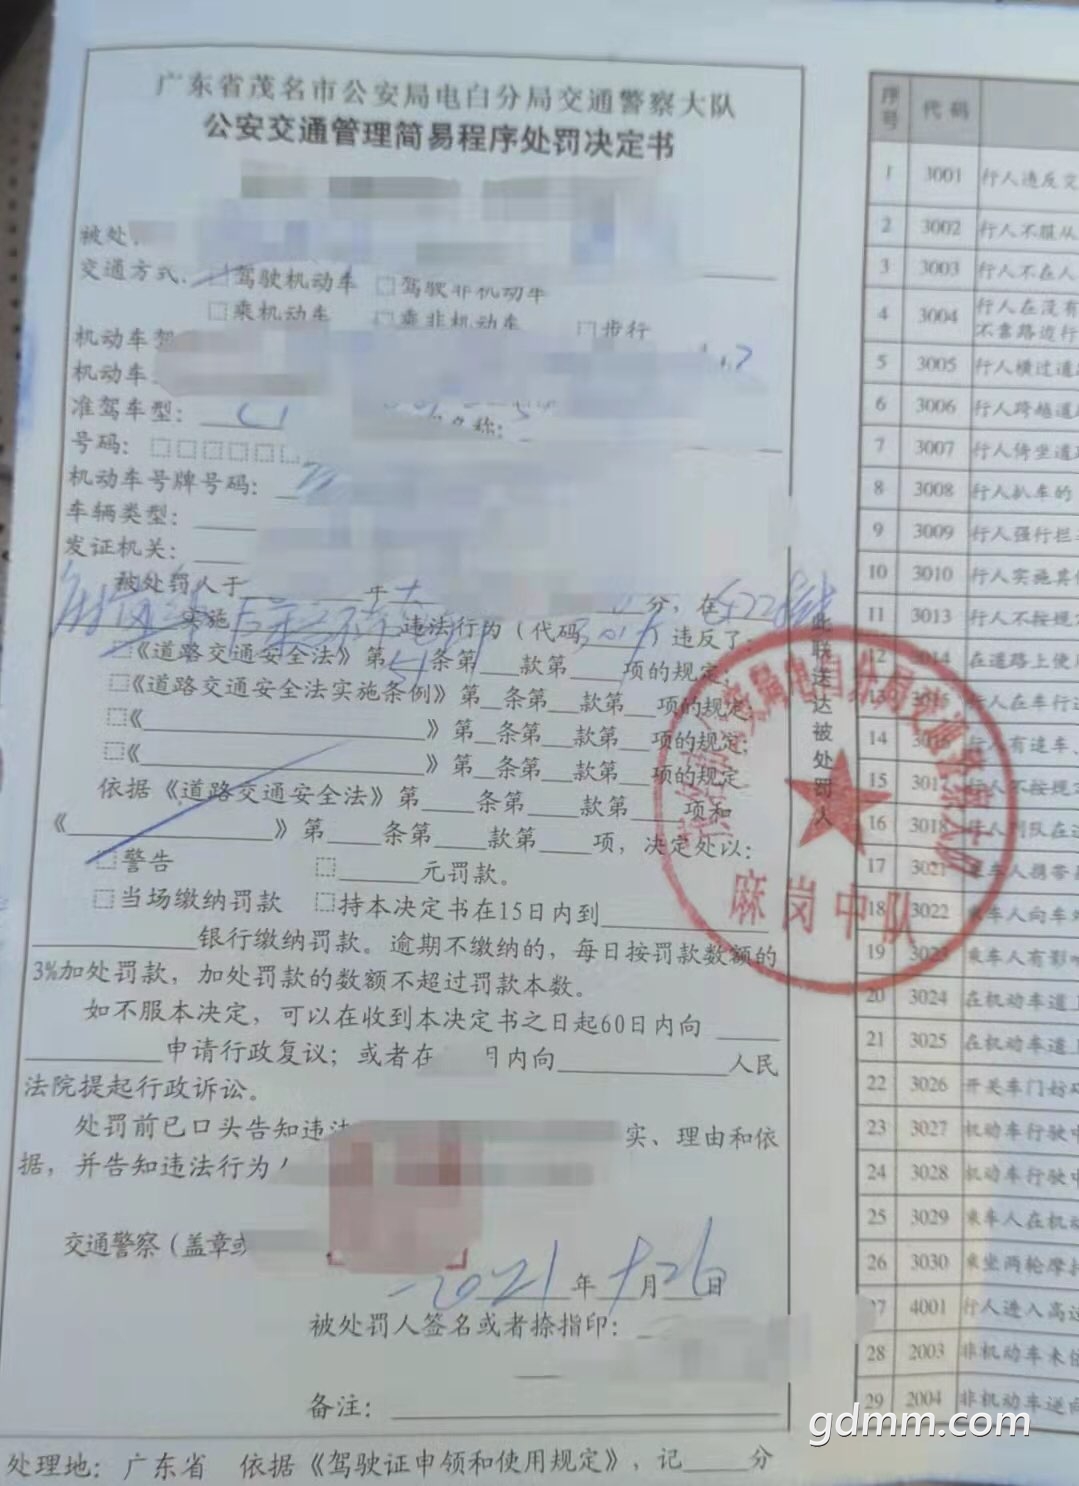 广东省茂名市公安局电白分局交通警察大队
公安交通管理简易程序处罚决定书
被处
交通方式: □驾驶机动车 □驾驶非机动车
□乘机动车 □乘非机动车 □步行
机动车驾
机动车
准驾车型: C1
号码: □□□□□
机动车号牌号码:
车辆类型:
发证机关:
被处罚人于 年 分, 在
实施 违法行为(代码 )违反了:
□《道路交通安全法》第51条第__款第__项的规定;
□《道路交通安全法实施条例》第__条第__款第__项的规定;
□《____》第__条第__款第__项的规定;
□《____》第__条第__款第__项的规定
依据《道路交通安全法》第__条第__款第__项和
《____》第__条第__款第__项, 决定处以:
□警告 □____元罚款。
□当场缴纳罚款 □持本决定书在15日内到____
____银行缴纳罚款。逾期不缴纳的, 每日按罚款数额的
3%加处罚款, 加处罚款的数额不超过罚款本数。
如不服本决定, 可以在收到本决定书之日起60日内向____
____申请行政复议; 或者在 月内向____人民
法院提起行政诉讼。
处罚前已口头告知违法 实、理由和依
据, 并告知违法行为
交通警察(盖章或
2021年10月26日
被处罚人签名或者捺指印:
备注:
处理地: 广东省 依据《驾驶证申领和使用规定》, 记____分
此联送达被处罚人
麻岗中队
序号 代码
1 3001 行人违反交
2 3002 行人不服从
3 3003 行人不在人
4 3004 行人在没有
不靠路边行
5 3005 行人横过道
6 3006 行人跨越道
7 3007 行人倚坐道
8 3008 行人扒车的
9 3009 行人强行拦
10 3010 行人实施其
11 3013 行人不按规
12 3014 在道路上使
13 3015 行人在车行
14 行人有追车、
15 3017 行人不按规
16 3018 行人列队在
17 3021 乘车人携带
18 3022 乘车人向车
19 3023 乘车人有影
20 3024 在机动车道上
21 3025 在机动车道上
22 3026 开关车门妨
23 3027 机动车行驶中
24 3028 机动车行驶中
25 3029 乘车人在机动
26 3030 乘坐两轮摩
27 4001 行人进入高
28 2003 非机动车未
29 2004 非机动车逆向
gdmm.com